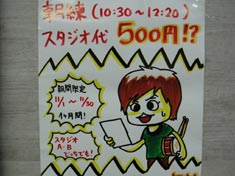 朝練(10:30～12:20)
スタジオ代 500円!?
期間限定
11/1～11/30
1ヶ月間!
スタジオ
A・B
どっちでも!